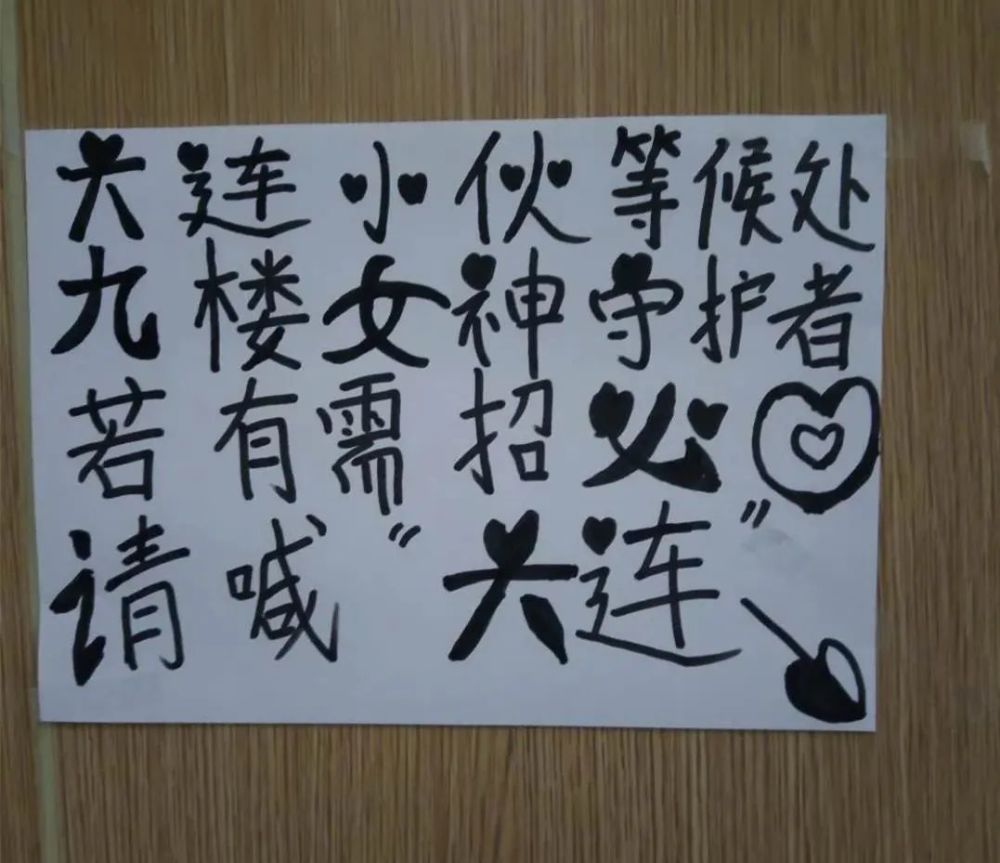 大连小伙等候处
九楼女神守护者
若有需招必
请喊“大连”